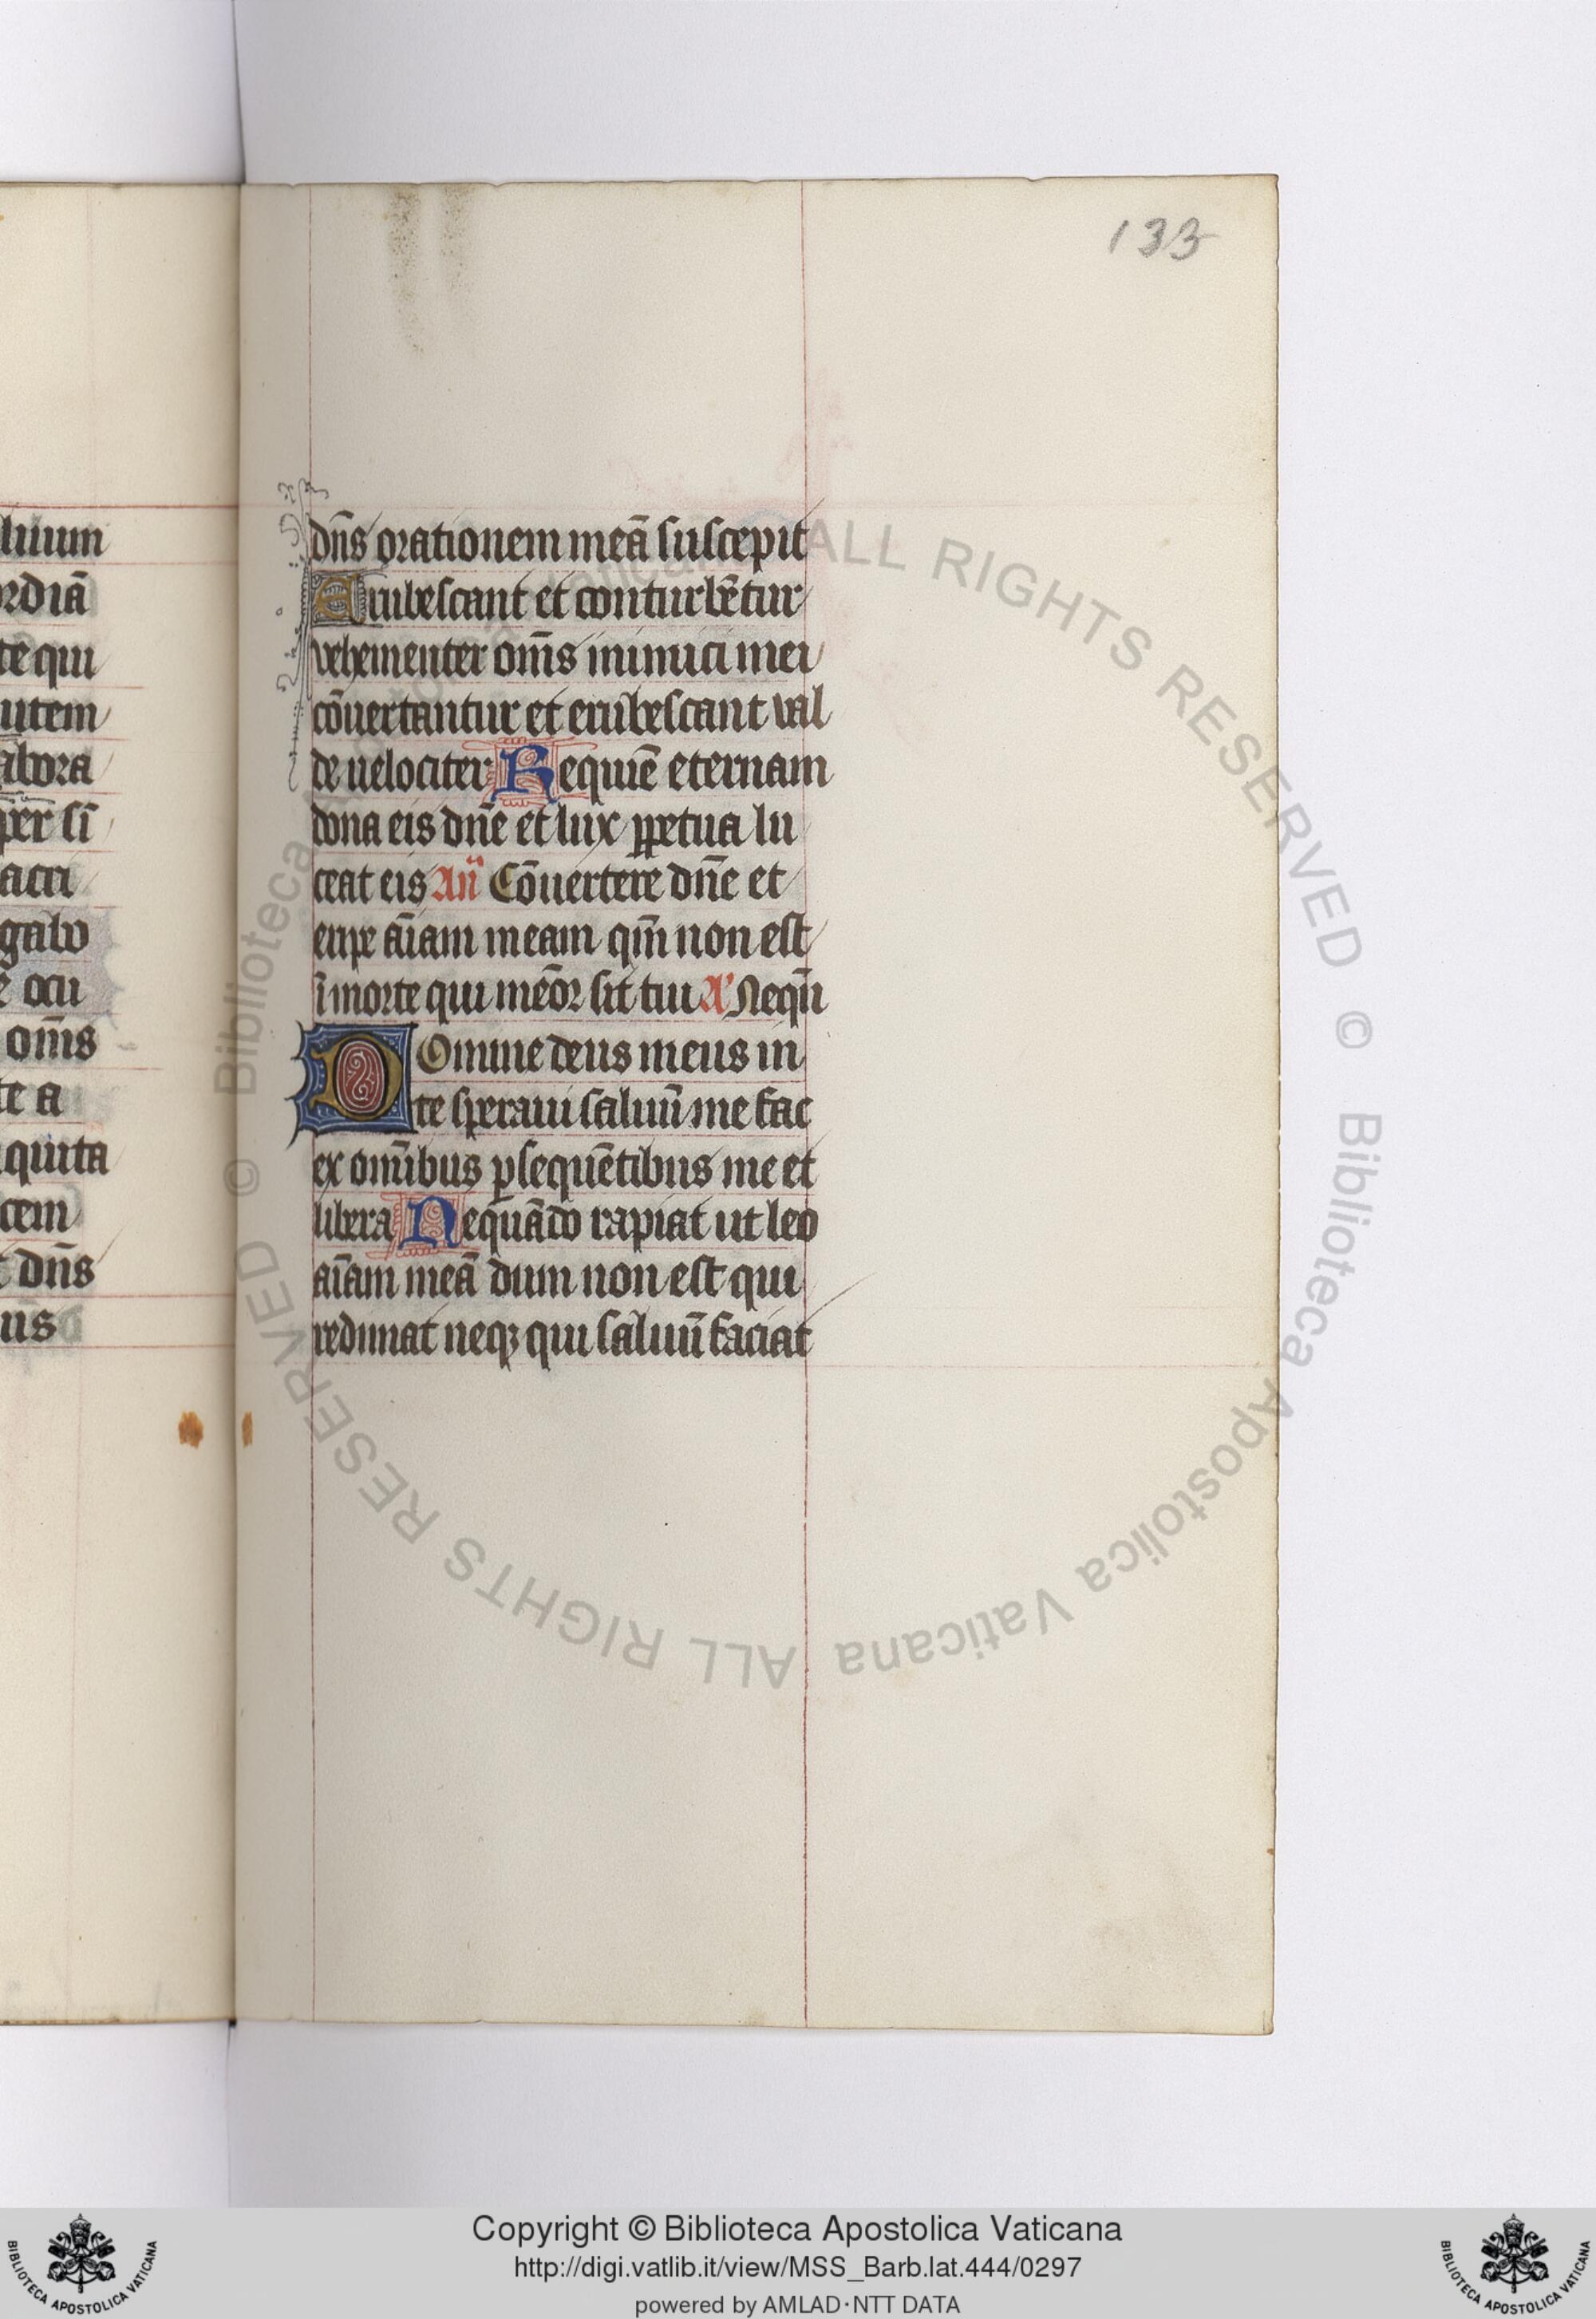 133
liuum
ordiā
te qui
utem
abora
per sī
acri
galo
e ocu
omīs
te a
iquita
cem
t dn̄s
us
dn̄s orationem meā suscepit
Erubescant et conturbētur
vehementer om̄s inimici mei
cōuertantur et erubescant val
de uelociter Requiē eternam
dona eis dn̄e et lux ꝑpetua lu
ceat eis Añ Cōuertere dn̄e et
eripe āiam meam qm̄ non est
ī morte qui meōr sit tui A' Nequā
Domine deus meus in
te speraui saluū me fac
ex omībus ꝑsequētibus me et
libera Nequādo rapiat ut leo
aīam meā dum non est qui
redimat neqꝫ qui saluū faciat
© Biblioteca Apostolica Vaticana ALL RIGHTS RESERVED
© Biblioteca Apostolica Vaticana ALL RIGHTS RESERVED
Copyright © Biblioteca Apostolica Vaticana
http://digi.vatlib.it/view/MSS_Barb.lat.444/0297
powered by AMLAD·NTT DATA
BIBLIOTECA APOSTOLICA VATICANA
BIBLIOTECA APOSTOLICA VATICANA